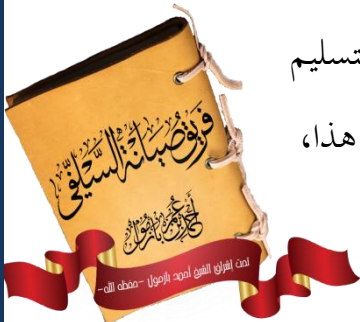 تسليم
هذا،
فريق صيانة السلفي
أحمد بن عمر بازمول
تحت إشراف الشيخ أحمد بازمول -حفظه الله-